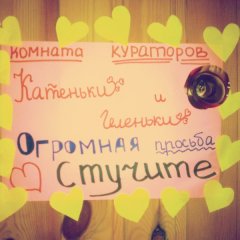 комната кураторов
Катеньки и
Геленьки
Огромная просьба
Стучите